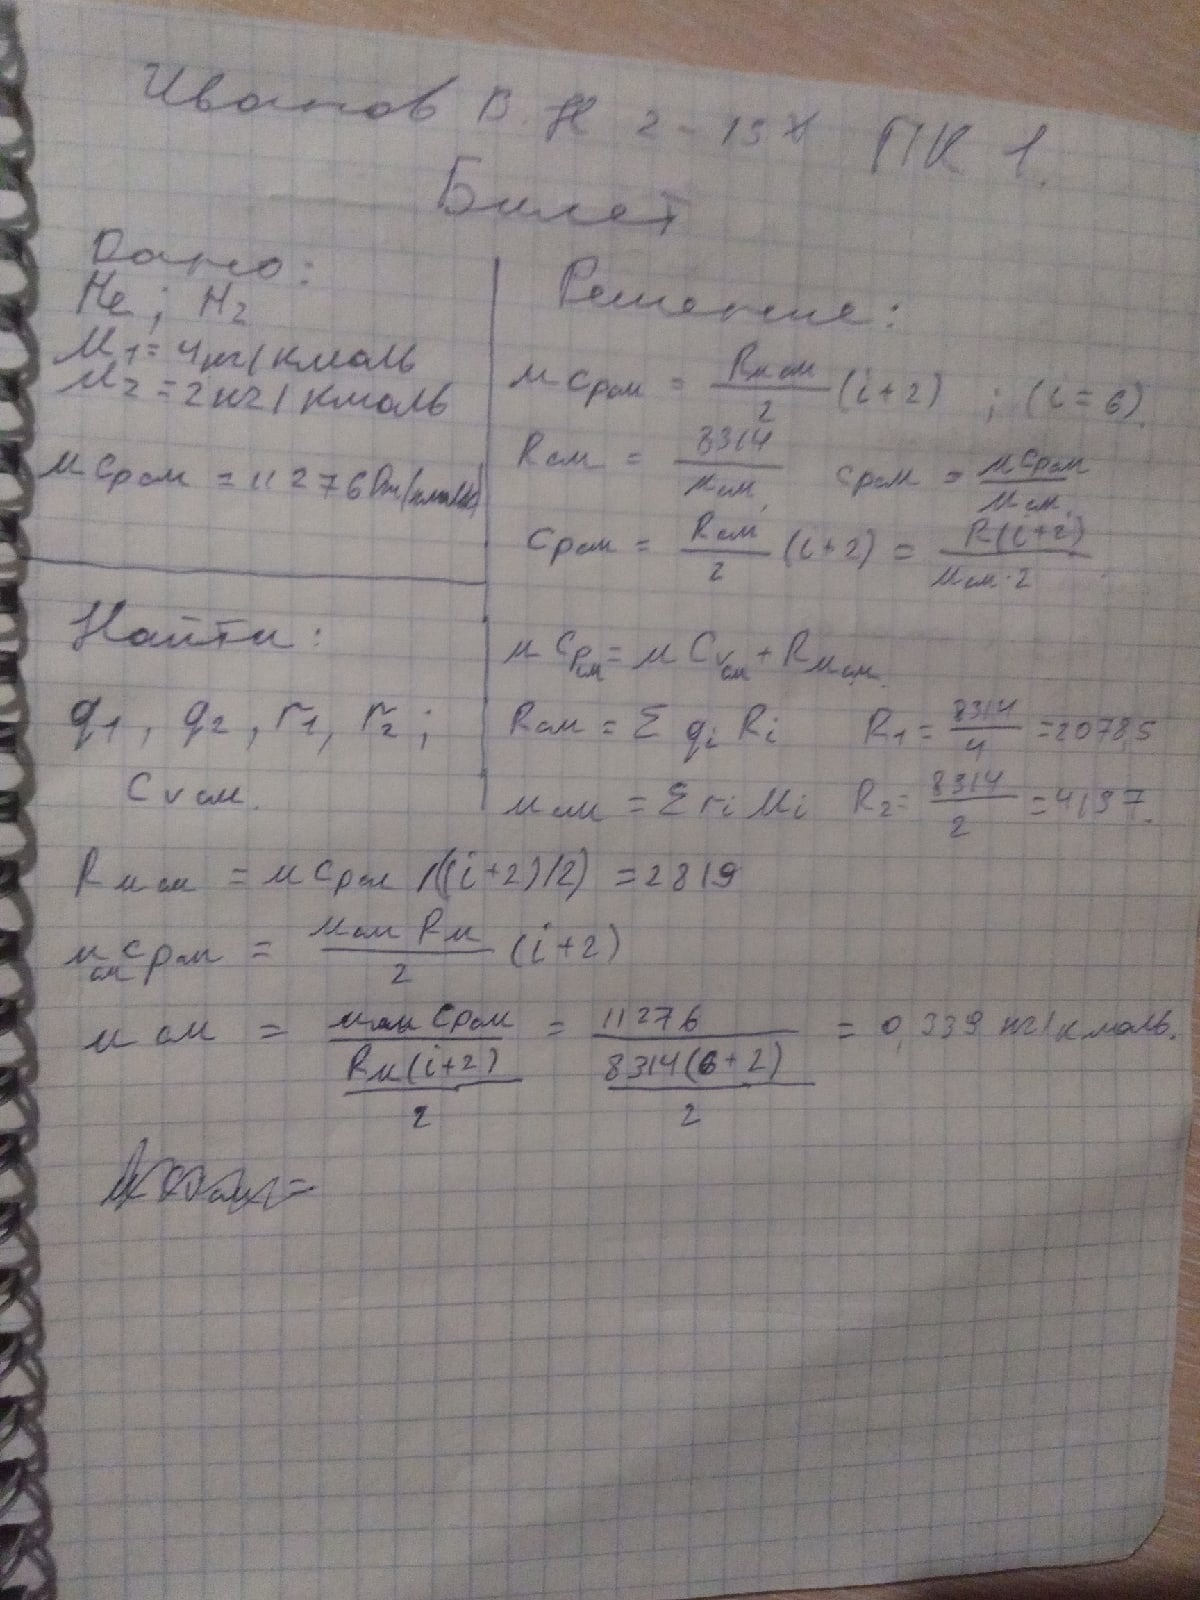 Иванов В. Н 2-13х ПК 1.
Билет
Дано:
He ; H2
M1=4кг/кмоль
M2=2кг/кмоль
μCpсм = 11276
Найти:
q1, q2, r1, r2;
Cvсм.
Решение:
μCpсм = Rμсм/2 (i+2) ; (i=6).
Rсм = 8314/μсм, Cpсм = μCpсм/μсм.
Cpсм = Rсм/2 (i+2) = R(i+2)/μсм·2
μCpсм = μCvсм + Rμсм.
Rсм = Σ qi Ri R1 = 8314/4 = 2078,5
μсм = Σ ri Mi R2 = 8314/2 = 4197.
Rμсм = μCpсм /((i+2)/2) = 2819
μсмCpсм = μсм Rμ/2 (i+2)
μсм = μсм Cpсм/Rμ(i+2)/2 = 11276/8314(6+2)/2 = 0,339 кг/кмоль.